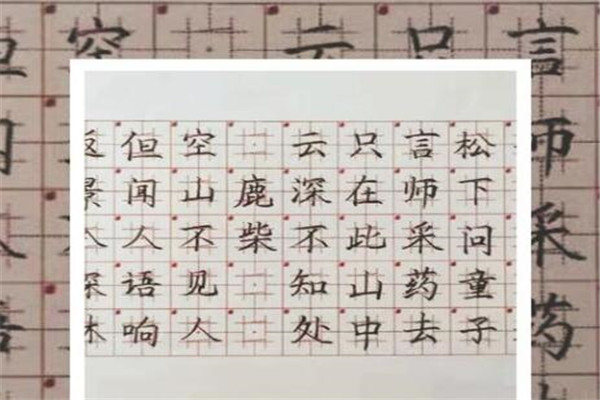 松下问童子
言师采药去
只在此山中
云深不知处
鹿柴
空山不见人
但闻人语响
返景入深林